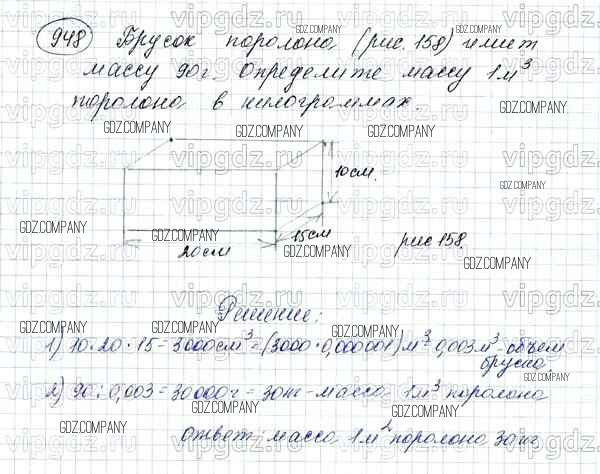 948 Брусок поролона (рис. 158) имеет
массу 90 г. Определите массу 1 м³
поролона в килограммах.
10 см.
15 см
20 см
рис 158.
Решение:
1) 10·20·15=3000 см³=(3000·0,000001) м³=0,003 м³-объем
бруска
2) 90:0,003=30000 г=30 кг-масса 1 м³ поролона
ответ: масса 1 м² поролона 30 кг
GDZ.COMPANY
vipgdz.com